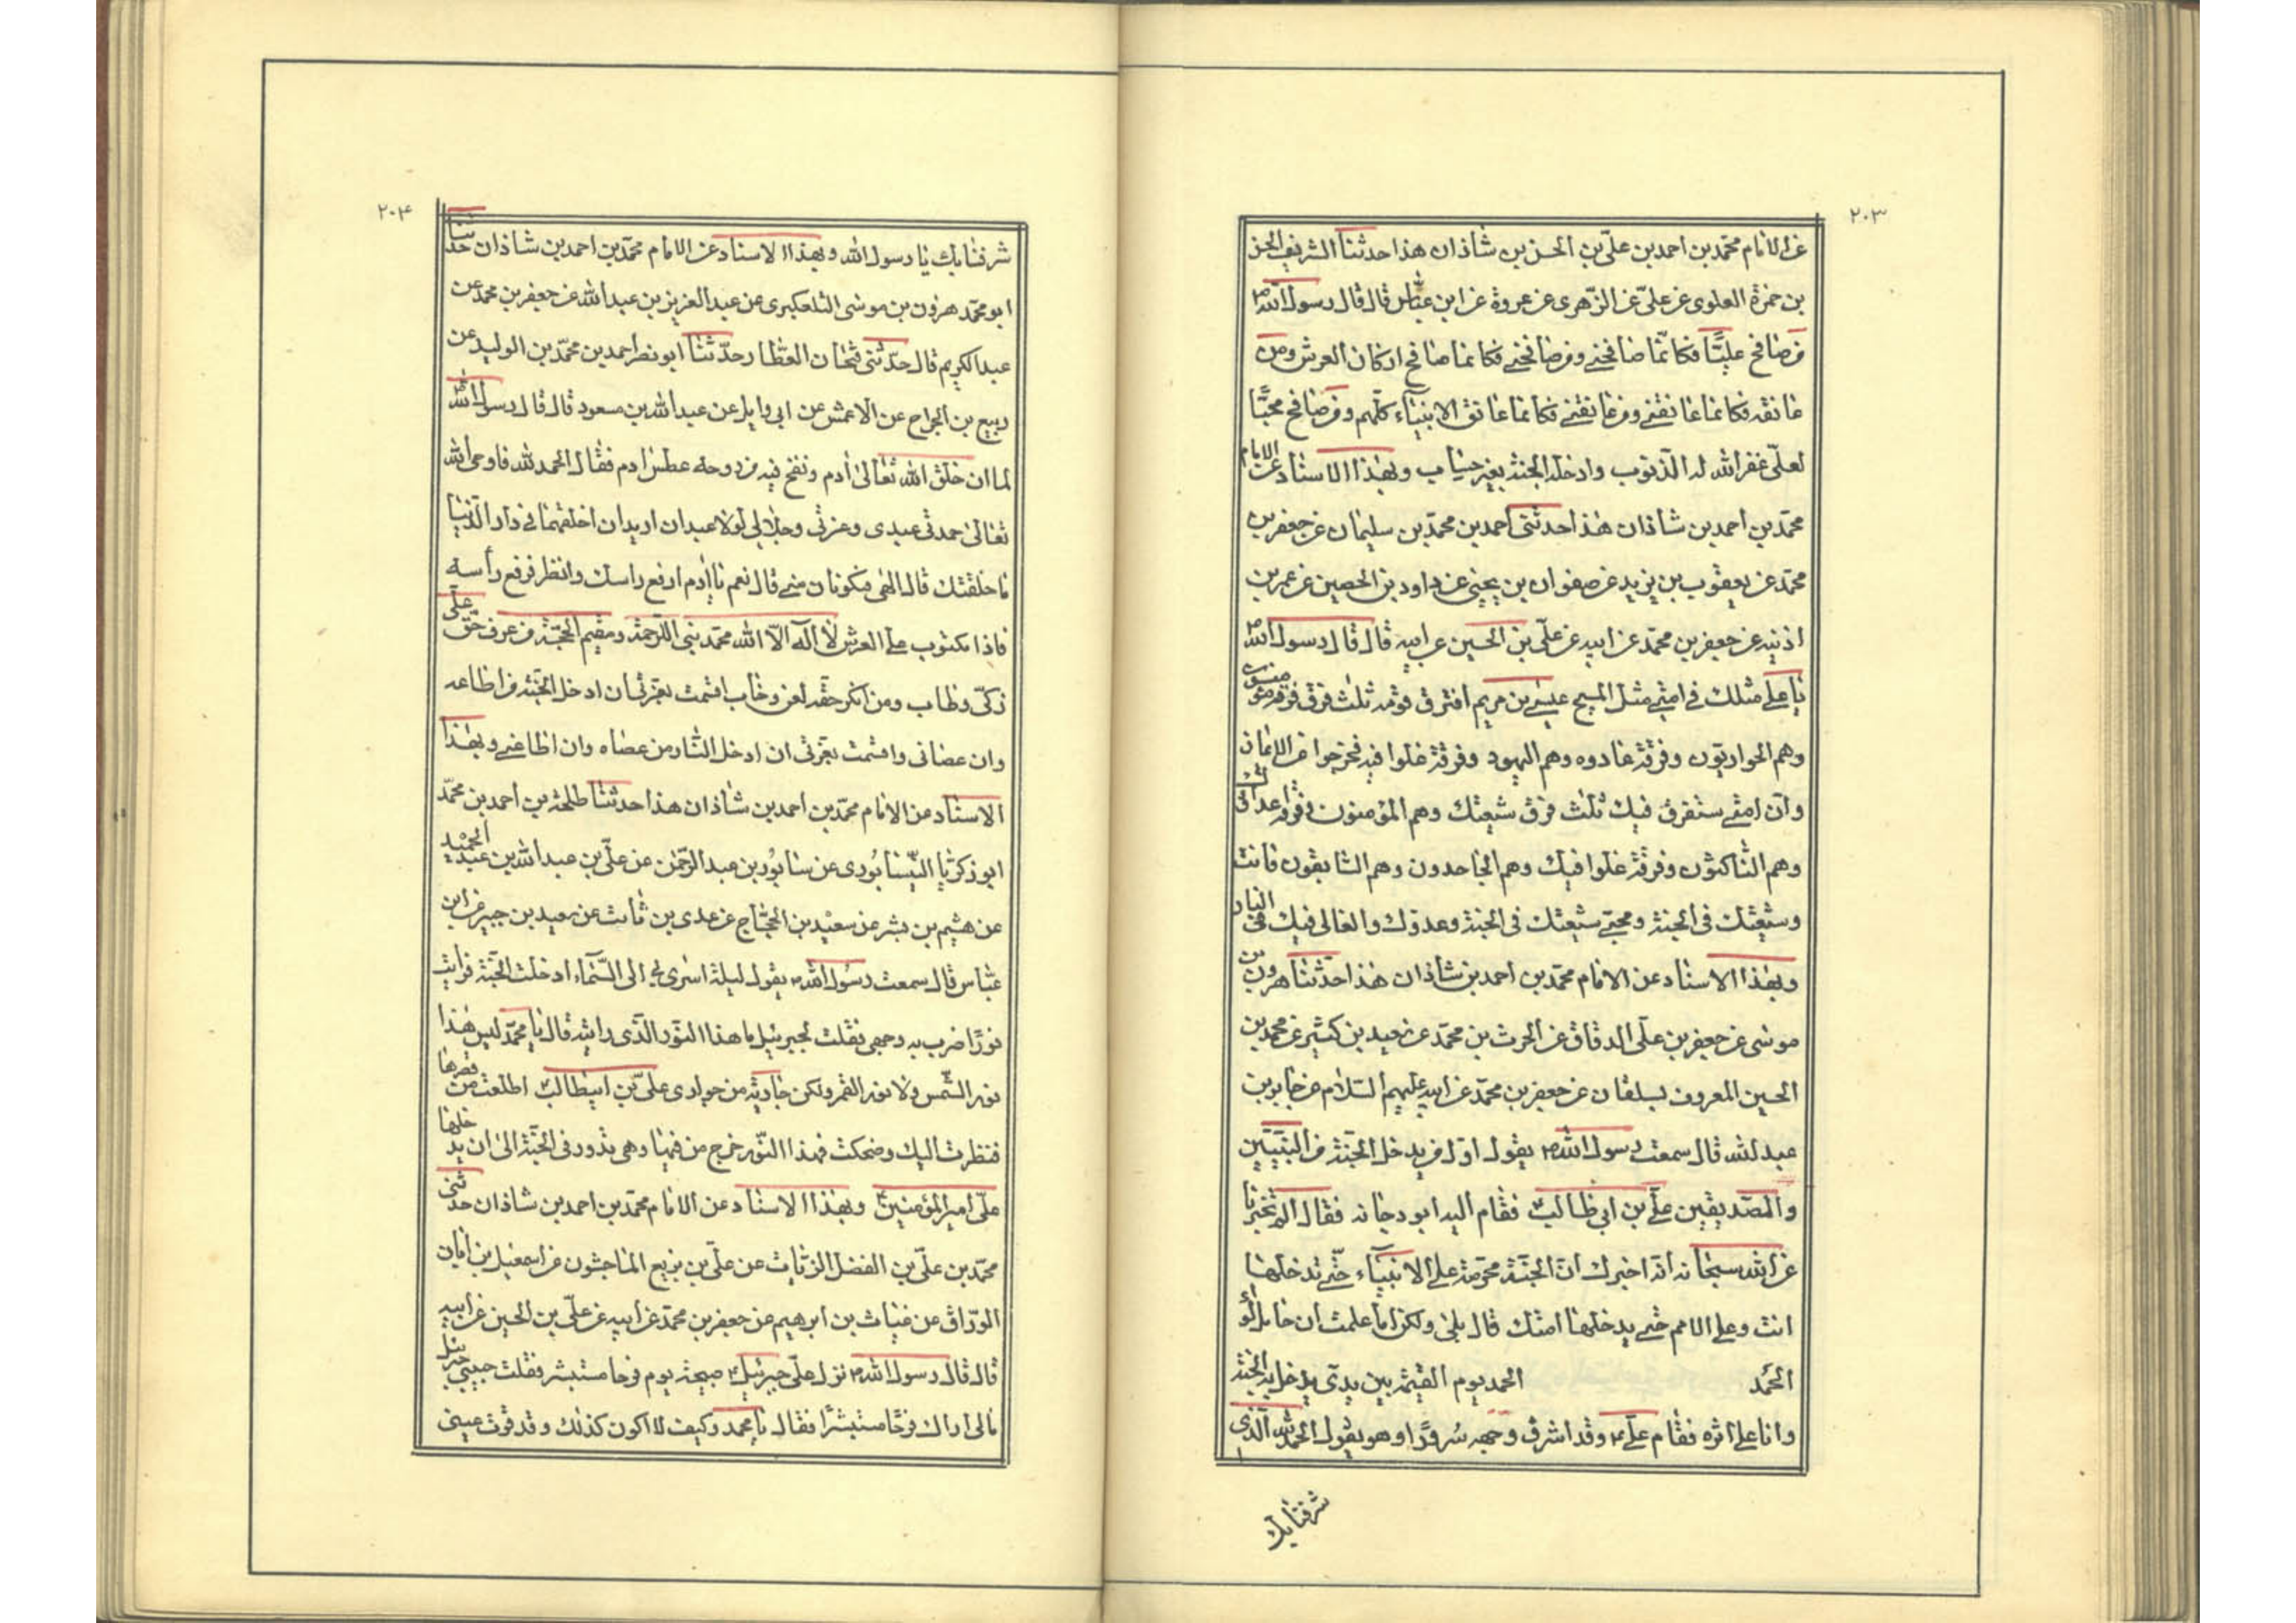 ٢٠٣
عن الامام محمّد بن احمد بن علّي بن الحسن بن شاذان هذا حدثنا الشريف الحسن
بن حمزة العلوى عن علّي عن الزّهرى عن عروة عن ابن عبّاس قال قال رسول الله ص
من صافح عليّا فكانّما صافحنى ومن صافحنى فكانما صافح اركان العرش ومن
عانقه فكانما عانقنى ومن عانقنى فكانما عانق الانبيآء كلّهم ومن صافح محبّا
لعلّى غفر الله له الذّنوب وادخله الجنة بغير حساب وبهذا الاسناد عن الامام
محمّد بن احمد بن شاذان هذا حدثنى احمد بن محمّد بن سليمان عن جعفر بن
محمّد عن يعقوب بن يزيد عن صفوان بن يحيى عن داود بن الحصين عن عمر بن
اذنيه عن جعفر بن محمّد عن ابيه عن علّى بن الحسين عن ابيه قال قال رسول الله ص
يا على مثلك فى امتى مثل المسيح عيسى بن مريم افترق قومه ثلث فرق فرقة مؤمنون
وهم الحواريّون وفرقة عادوه وهم اليهود وفرقة غلوا فيه فخرجوا عن الايمان
وانّ امتى ستفرق فيك ثلث فرق شيعتك وهم المؤمنون وفرقة اعدائك
وهم الناكثون وفرقة غلوا فيك وهم الجاحدون وهم السّابقون فانت
وشيعتك فى الجنة ومحبّى شيعتك فى الجنة وعدوّك والغالى فيك فى النار
وبهذا الاسناد عن الامام محمّد بن احمد بن شاذان هذا حدّثنا هرون بن
موسى عن جعفر بن علّى الدقاق عن الحرث بن محمّد عن سعيد بن كثير عن محمد بن
الحسين المعروف بسلقان عن جعفر بن محمّد عن ابيه عليهم السّلام عن جابر بن
عبد لله قال سمعت رسول الله ص يقول اوّل من يدخل الجنّة من النبيّين
والصّديقين علّى بن ابى طالب ع فقام اليه ابو دجانه فقال الم تخبرنا
عن الله سبحانه انّه اخبرك انّ الجنّة محرّمة على الانبيآء حتّى تدخلها
انت وعلى الامم حتى يدخلها امتك قال بلى ولكن اما علمت ان حامل لوآء
الحمد الحمد يوم القيمة بين يدىّ يدخل به الجنة
وانا على اثره فقام علّى ع وقد اشرق وجهه سُرورًا وهو يقول الحمد لله الّذى
شرفنا بك
٢٠٤
شرفنا بك يا رسول الله وبهذا الاسناد عن الامام محمّد بن احمد بن شاذان حدثنا
ابو محمّد هرون بن موسى التلعكبرى عن عبد العزيز بن عبد الله عن جعفر بن محمد عن
عبد الكريم قال حدّثنى قحان العطّار حدّثنا ابو نصر احمد بن محمّد بن الوليد عن
ربيع بن الجراح عن الاعمش عن ابى وايل عن عبد الله بن مسعود قال قال رسول الله ص
لما ان خلق الله تعالى ادم ونفخ فيه من روحه عطس ادم فقال الحمد لله فاوحى الله
تعالى حمدنى عبدى وعزتى وجلالى لولا عبدان اريد ان اخلقهما فى دار الدّنيا
ما خلقتك قال الهى فيكونان منى قال نعم يا ادم ارفع راسك وانظر فرفع رأسه
فاذا مكتوب على العرش لا اله الّا الله محمّد نبى الرّحمة ومقيم الحجّة من عرف حقّ علّى
زكّى وطاب ومن انكر حقّه لعن وخاب اقسمت بعزتى ان ادخل الجنّة من اطاعه
وان عصانى واقسمت بعزتى ان ادخل النّار من عصاه وان اطاعنى وبهذا
الاسناد عن الامام محمّد بن احمد بن شاذان هذا حدثنا طلحة بن احمد بن محمّد
ابو زكريّا النّيسابُورى عن سابُور بن عبد الرّحمن عن علّى بن عبد الله بن عبد الحميد
عن هشيم بن بشر عن سعيد بن الحجّاج عن عدى بن ثابت عن سعيد بن جبير عن ابن
عبّاس قال سمعت رسُول الله ص يقول ليلة اسرى بى الى السّمآء ادخلت الجنّة فرايت
نورًا ضرب به وجهى فقلت لجبرئيل ما هذا النّور الّذى رايته قال يا محمّد ليس هذا
نور الشّمس ولا نور القمر ولكن جارية من جوارى علّى بن ابيطالب ع اطلعت من قصرها
فنظرت اليك وضحكت فهذا النّور خرج من فيها وهى تدور فى الجنّة الى ان يدخلها
علّى امير المؤمنين ع وبهذا الاسناد عن الامام محمّد بن احمد بن شاذان حدثنى
محمّد بن علّى بن الفضل الزيّات عن علّى بن بزيع الماجشون عن اسمعيل بن ابان
الورّاق عن غياث بن ابرهيم عن جعفر بن محمّد عن ابيه عن علّى بن الحسين عن ابيه
قال قال رسول الله ص نزل علّى جبرئيل ع صبيحة يوم فرحا مستبشر فقلت حبيبى جبرئيل
مالى اراك فرحًا مستبشرًا فقال يا محمد وكيف لا اكون كذلك وقد قرت عينى